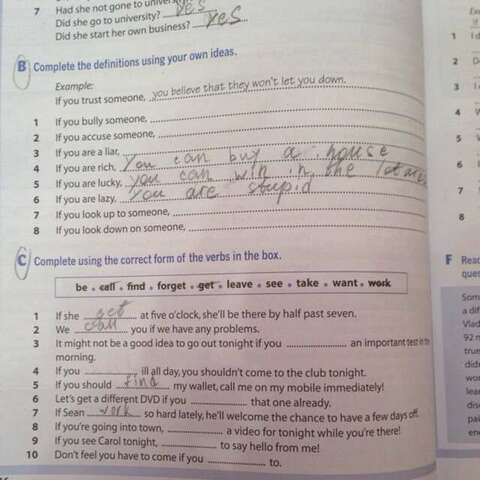 7 Had she not gone to university? yes
Did she go to university? yes
Did she start her own business?
B Complete the definitions using your own ideas.
Example:
If you trust someone, you believe that they won't let you down.
1 If you bully someone,
2 If you accuse someone,
3 If you are a liar,
4 If you are rich, You can buy a house
5 If you are lucky, you can win in the
6 If you are lazy, You are stupid
7 If you look up to someone,
8 If you look down on someone,
C Complete using the correct form of the verbs in the box.
be • call • find • forget • get • leave • see • take • want • work
1 If she get at five o'clock, she'll be there by half past seven.
2 We call you if we have any problems.
3 It might not be a good idea to go out tonight if you an important test in the
morning.
4 If you ill all day, you shouldn't come to the club tonight.
5 If you should find my wallet, call me on my mobile immediately!
6 Let's get a different DVD if you that one already.
7 If Sean work so hard lately, he'll welcome the chance to have a few days off.
8 If you're going into town, a video for tonight while you're there!
9 If you see Carol tonight, to say hello from me!
10 Don't feel you have to come if you to.
F